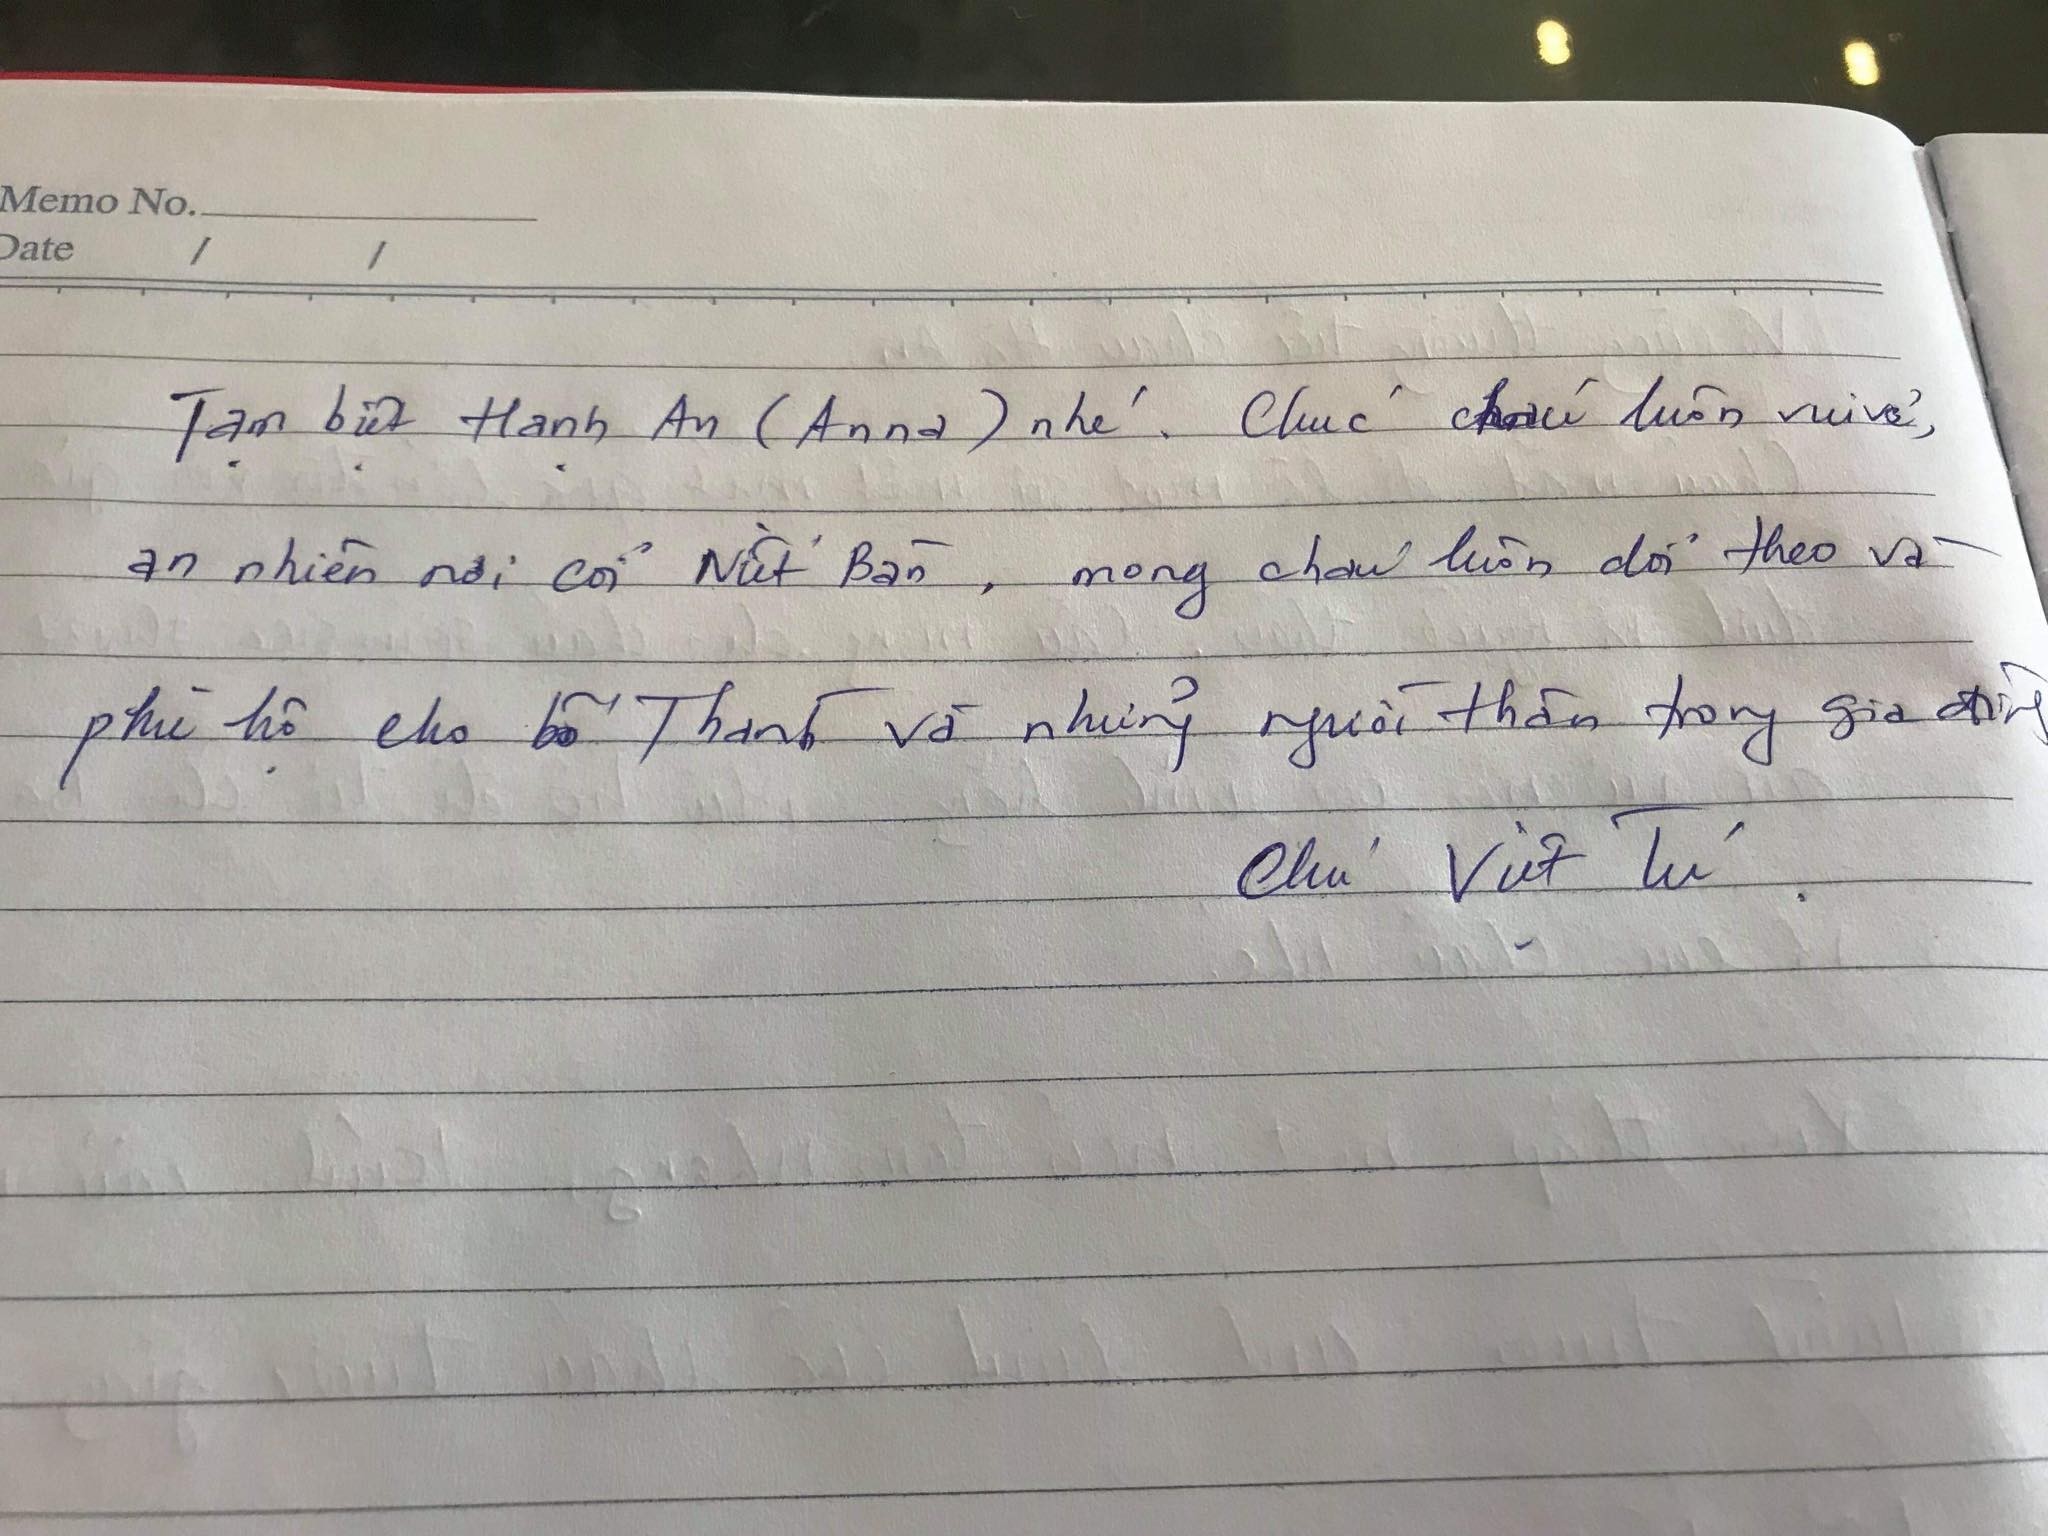 Memo No.
Date / /
Tạm biệt Hạnh An (Anna) nhé. Chúc cháu luôn vui vẻ,
an nhiên nơi cõi Niết Bàn, mong cháu luôn dõi theo và
phù hộ cho bố Thanh và những người thân trong gia đình
Chú Việt Tú.